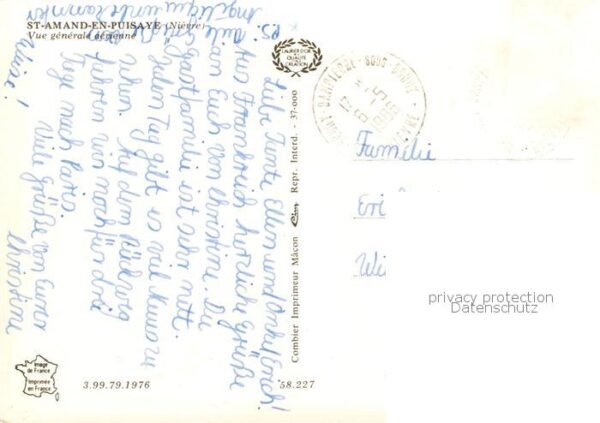 ST-AMAND-EN-PUISAYE (Nièvre)
Vue générale aérienne
Liebe Tante Ellen und Onkel Erich!
Aus Frankreich herzliche Grüße
an Euch von Christine. Die
Gastfamilie ist sehr nett.
Jeden Tag gibt es viel Neues zu
sehen. Auf dem Rückweg
fahren wir noch für drei
Tage nach Paris.
Viele Grüße von Eurer
Christine
PS. Viele Grüße
LAURIER D'OR
DE LA QUALITÉ
CRÉATION
Combier Imprimeur Mâcon Cim Repr. Interd. - 37-000
Familie
Eri
Wi
privacy protection
Datenschutz
Image
de France
Imprimée
en France
3.99.79.1976
58.227